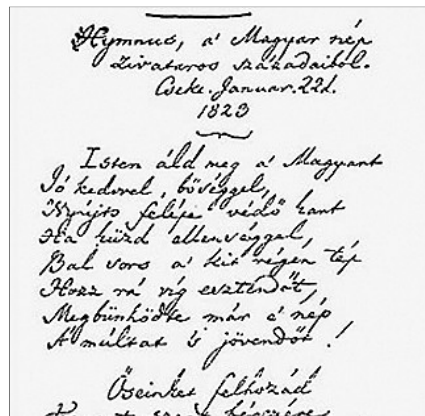 Hymnus, a' Magyar nép
zivataros századaiból.
Cseke. Januar. 22d.
1823
Isten áld meg a' Magyart
Jó kedvvel, bőséggel,
Nyújts feléje védő kart
Ha küzd ellenséggel,
Bal sors a' kit régen tép
Hozz rá víg esztendőt,
Megbűnhődte már e' nép
A' múltat 's jövendőt!
Őseinket felhozád